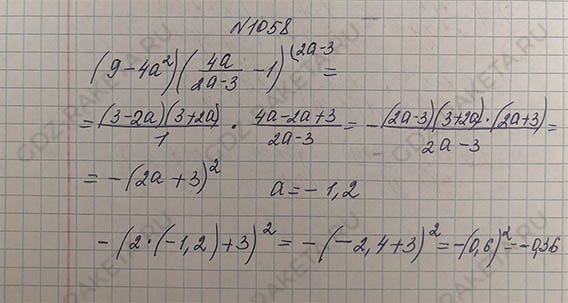 №1058
(9-4a²)(4a/2a-3 -1)^(2a-3 =
= (3-2a)(3+2a)/1 · 4a-2a+3/2a-3 = -(2a-3)(3+2a)·(2a+3)/2a-3 =
= -(2a+3)² a=-1,2
-(2·(-1,2)+3)² = -(-2,4+3)² = -(0,6)² = -0,36
GDZ.RAKETA.RU